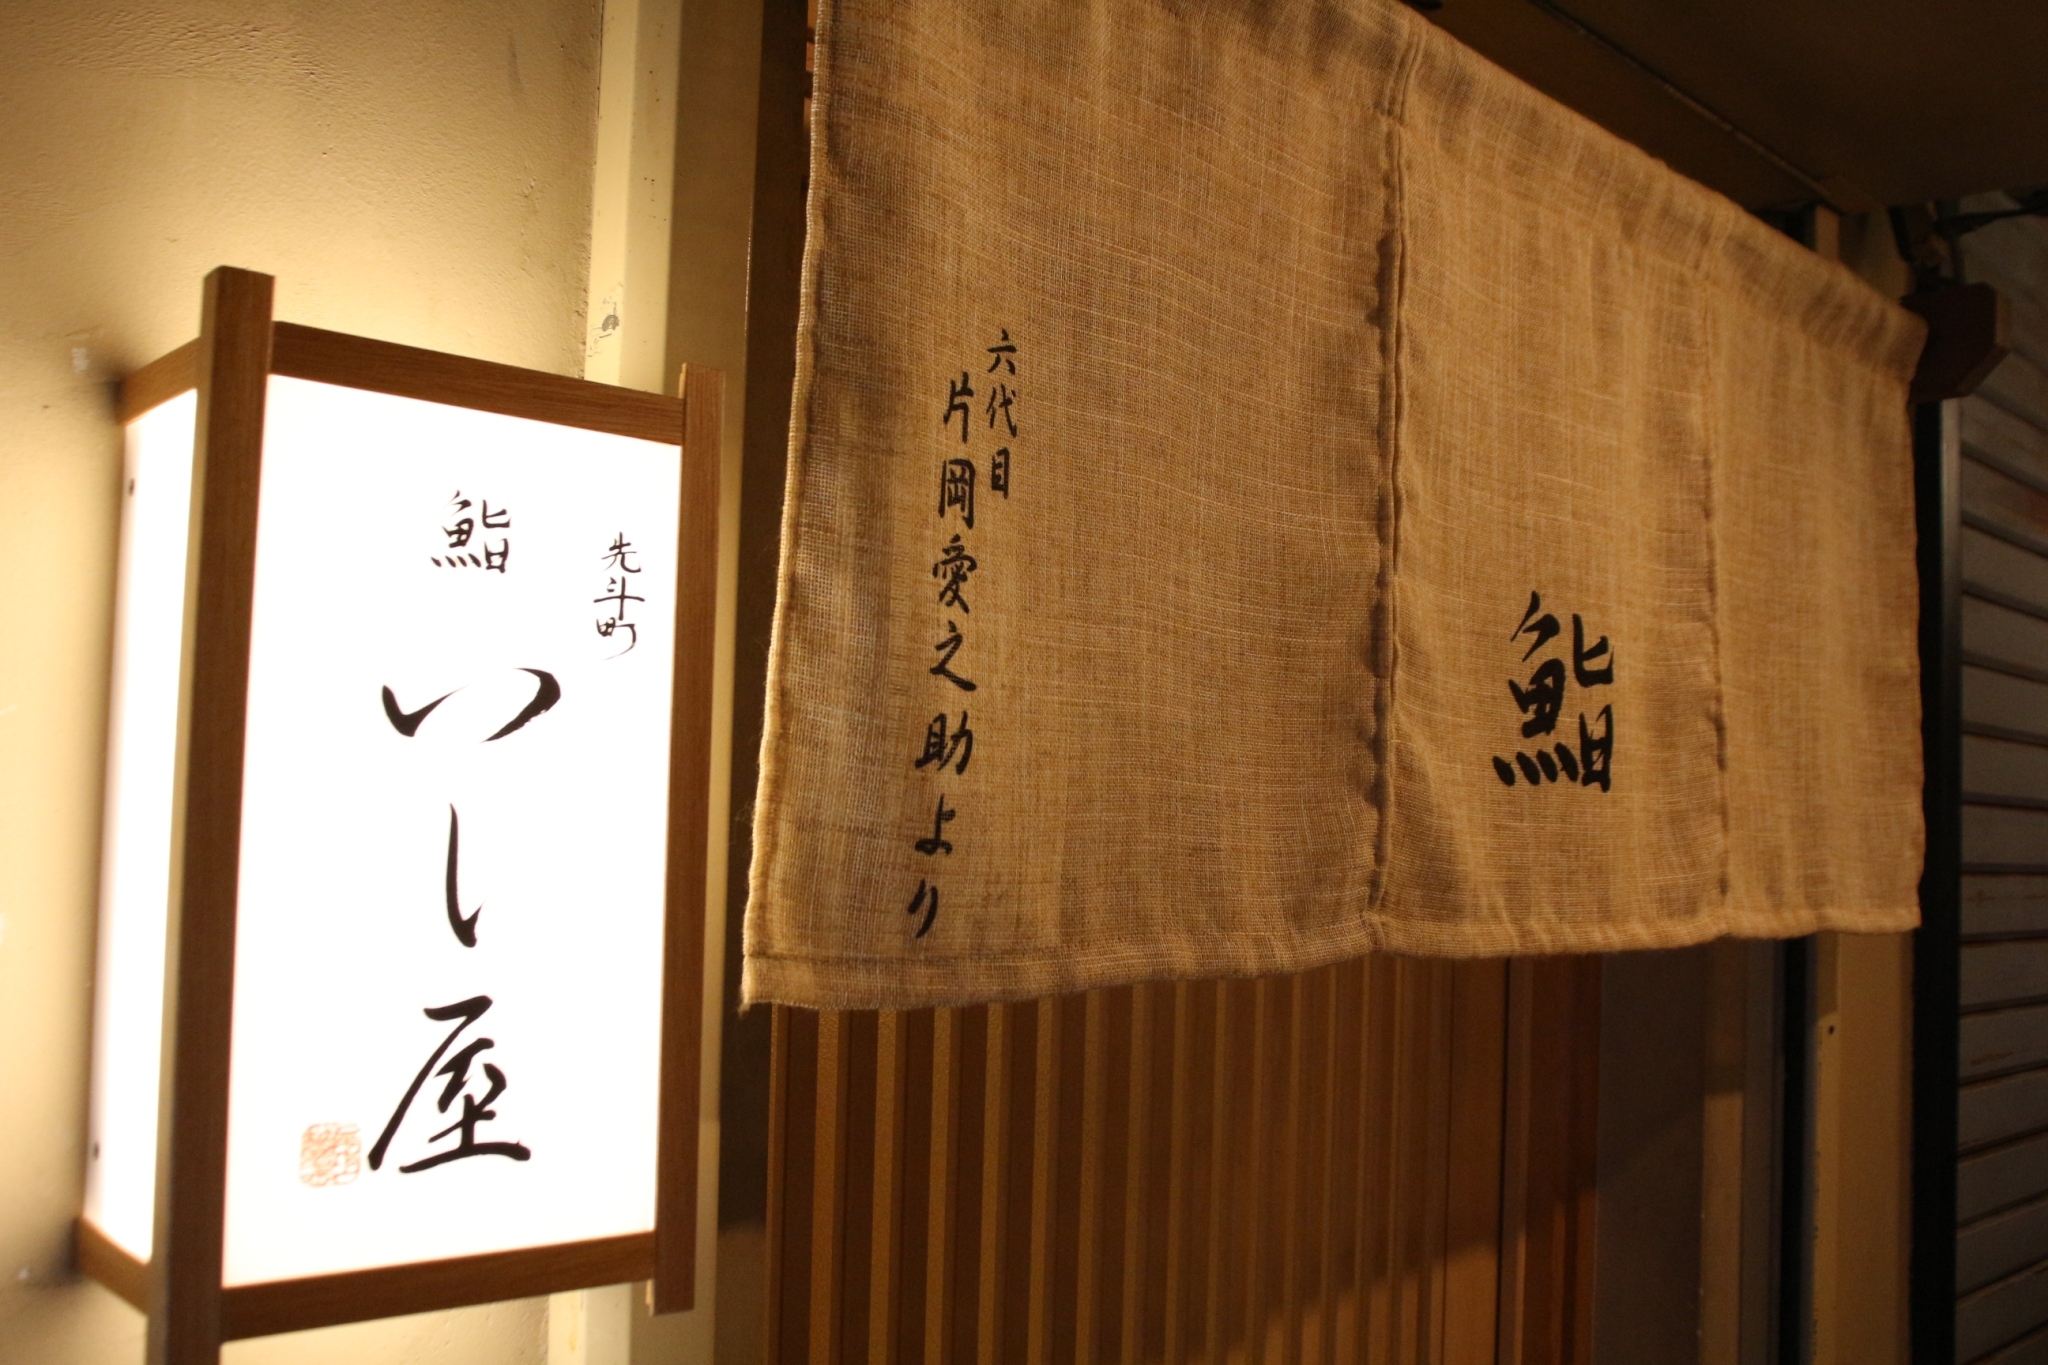 先斗町
鮨
いし屋
鮨
六代目
片岡愛之助より